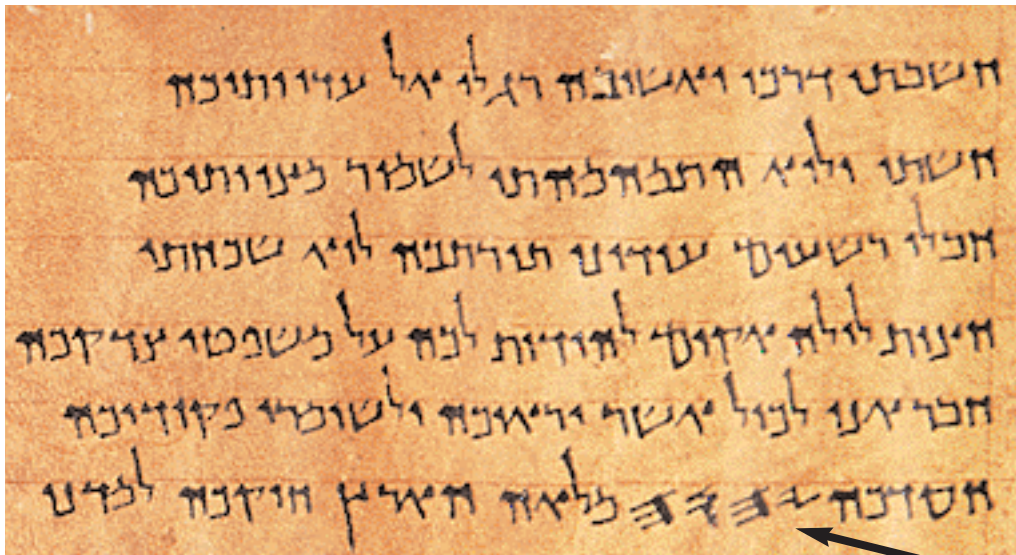 חשבתי דרכי ואשיבה רגלי אל עדוותיכה
חשתי ולוא התמהמהתי לשמור מצוותיכה
חבלי רשעים עודוני תורתכה לוא שכחתי
חצות לילה אקום להודות לכה על משפטי צדקכה
חבר אני לכול אשר יראוכה ולשומרי פקודיכה
חסדכה 𐤉𐤄𐤅𐤄 מלאה הארץ חוקכה למדני